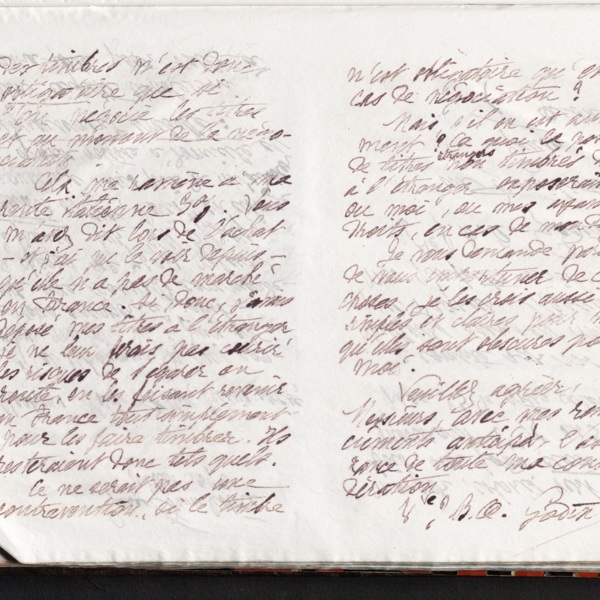 des timbres n'est donc
obligatoire que si
l'on négocie les titres
et au moment de la négo-
ciation.
Cela me ramène a ma
rente italienne 3%. Vous
m'avez dit lors de l'achat
- et j'ai pu le voir depuis -
qu'elle n'a pas de marché
en France. Si donc, j'avais
déposé mes titres a l'étranger
je ne leur ferais pas courir
les risques de s'égarer en
route, en les faisant revenir
en France tout simplement
pour les faire timbrer. Ils
resteraient donc tels quels.
Ce ne serait pas une
contravention, si le timbre
n'est obligatoire qu'en
cas de négociation ?
Mais s'il en est
ment ? Ca quoi le
de titres étrangers non timbrés
à l'étranger exposerait
ou moi, ou mes ayant
droits, en cas de
Je vous demande
de vous entretenir de
choses, je les crois aussi
simples et claires pour
qu'elles sont obscures pour
moi.
Veuillez agréer,
Messieurs, avec mes
ciements anticipés, l'assu
rance de toute ma consi
dération.
Vve J. B. A. Godin